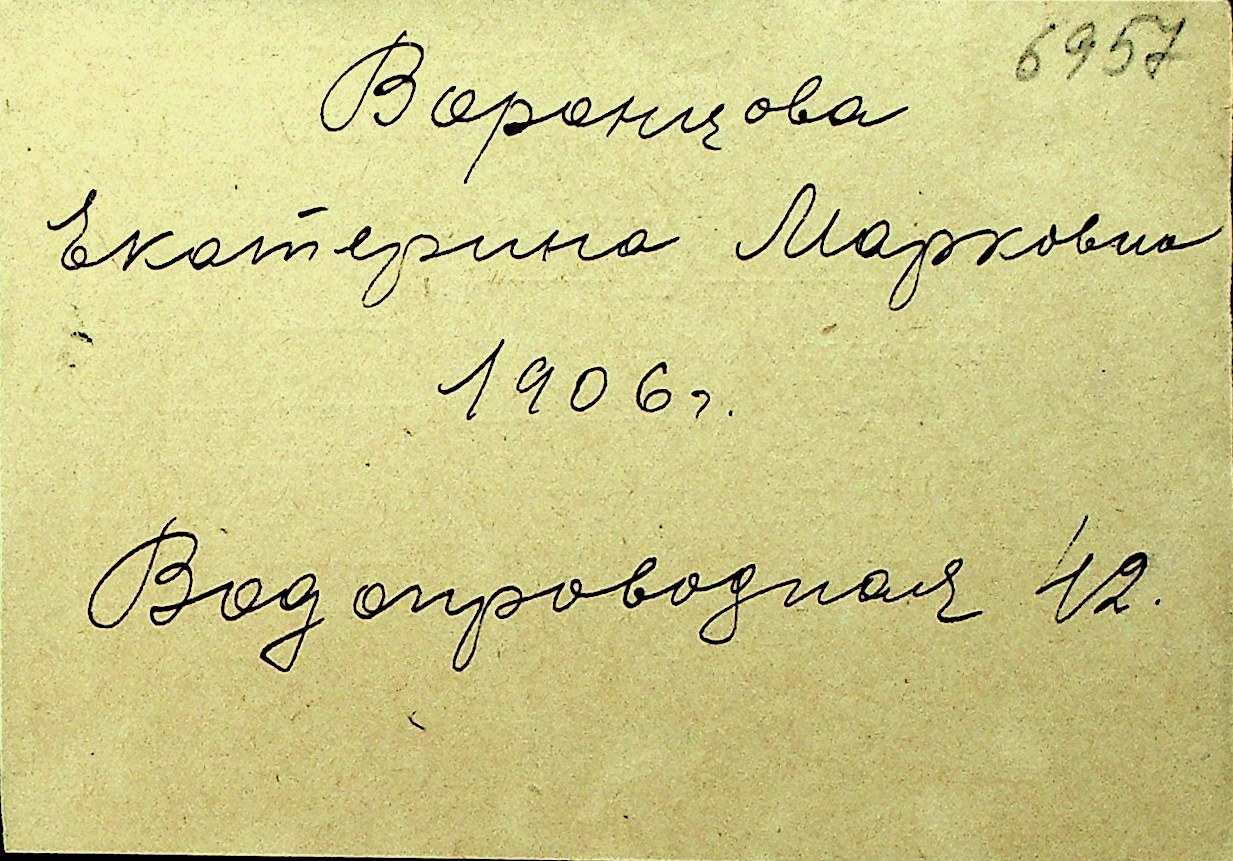 6957
Воронцова
Екатерина Марковна
1906г.
Водопроводная 12.